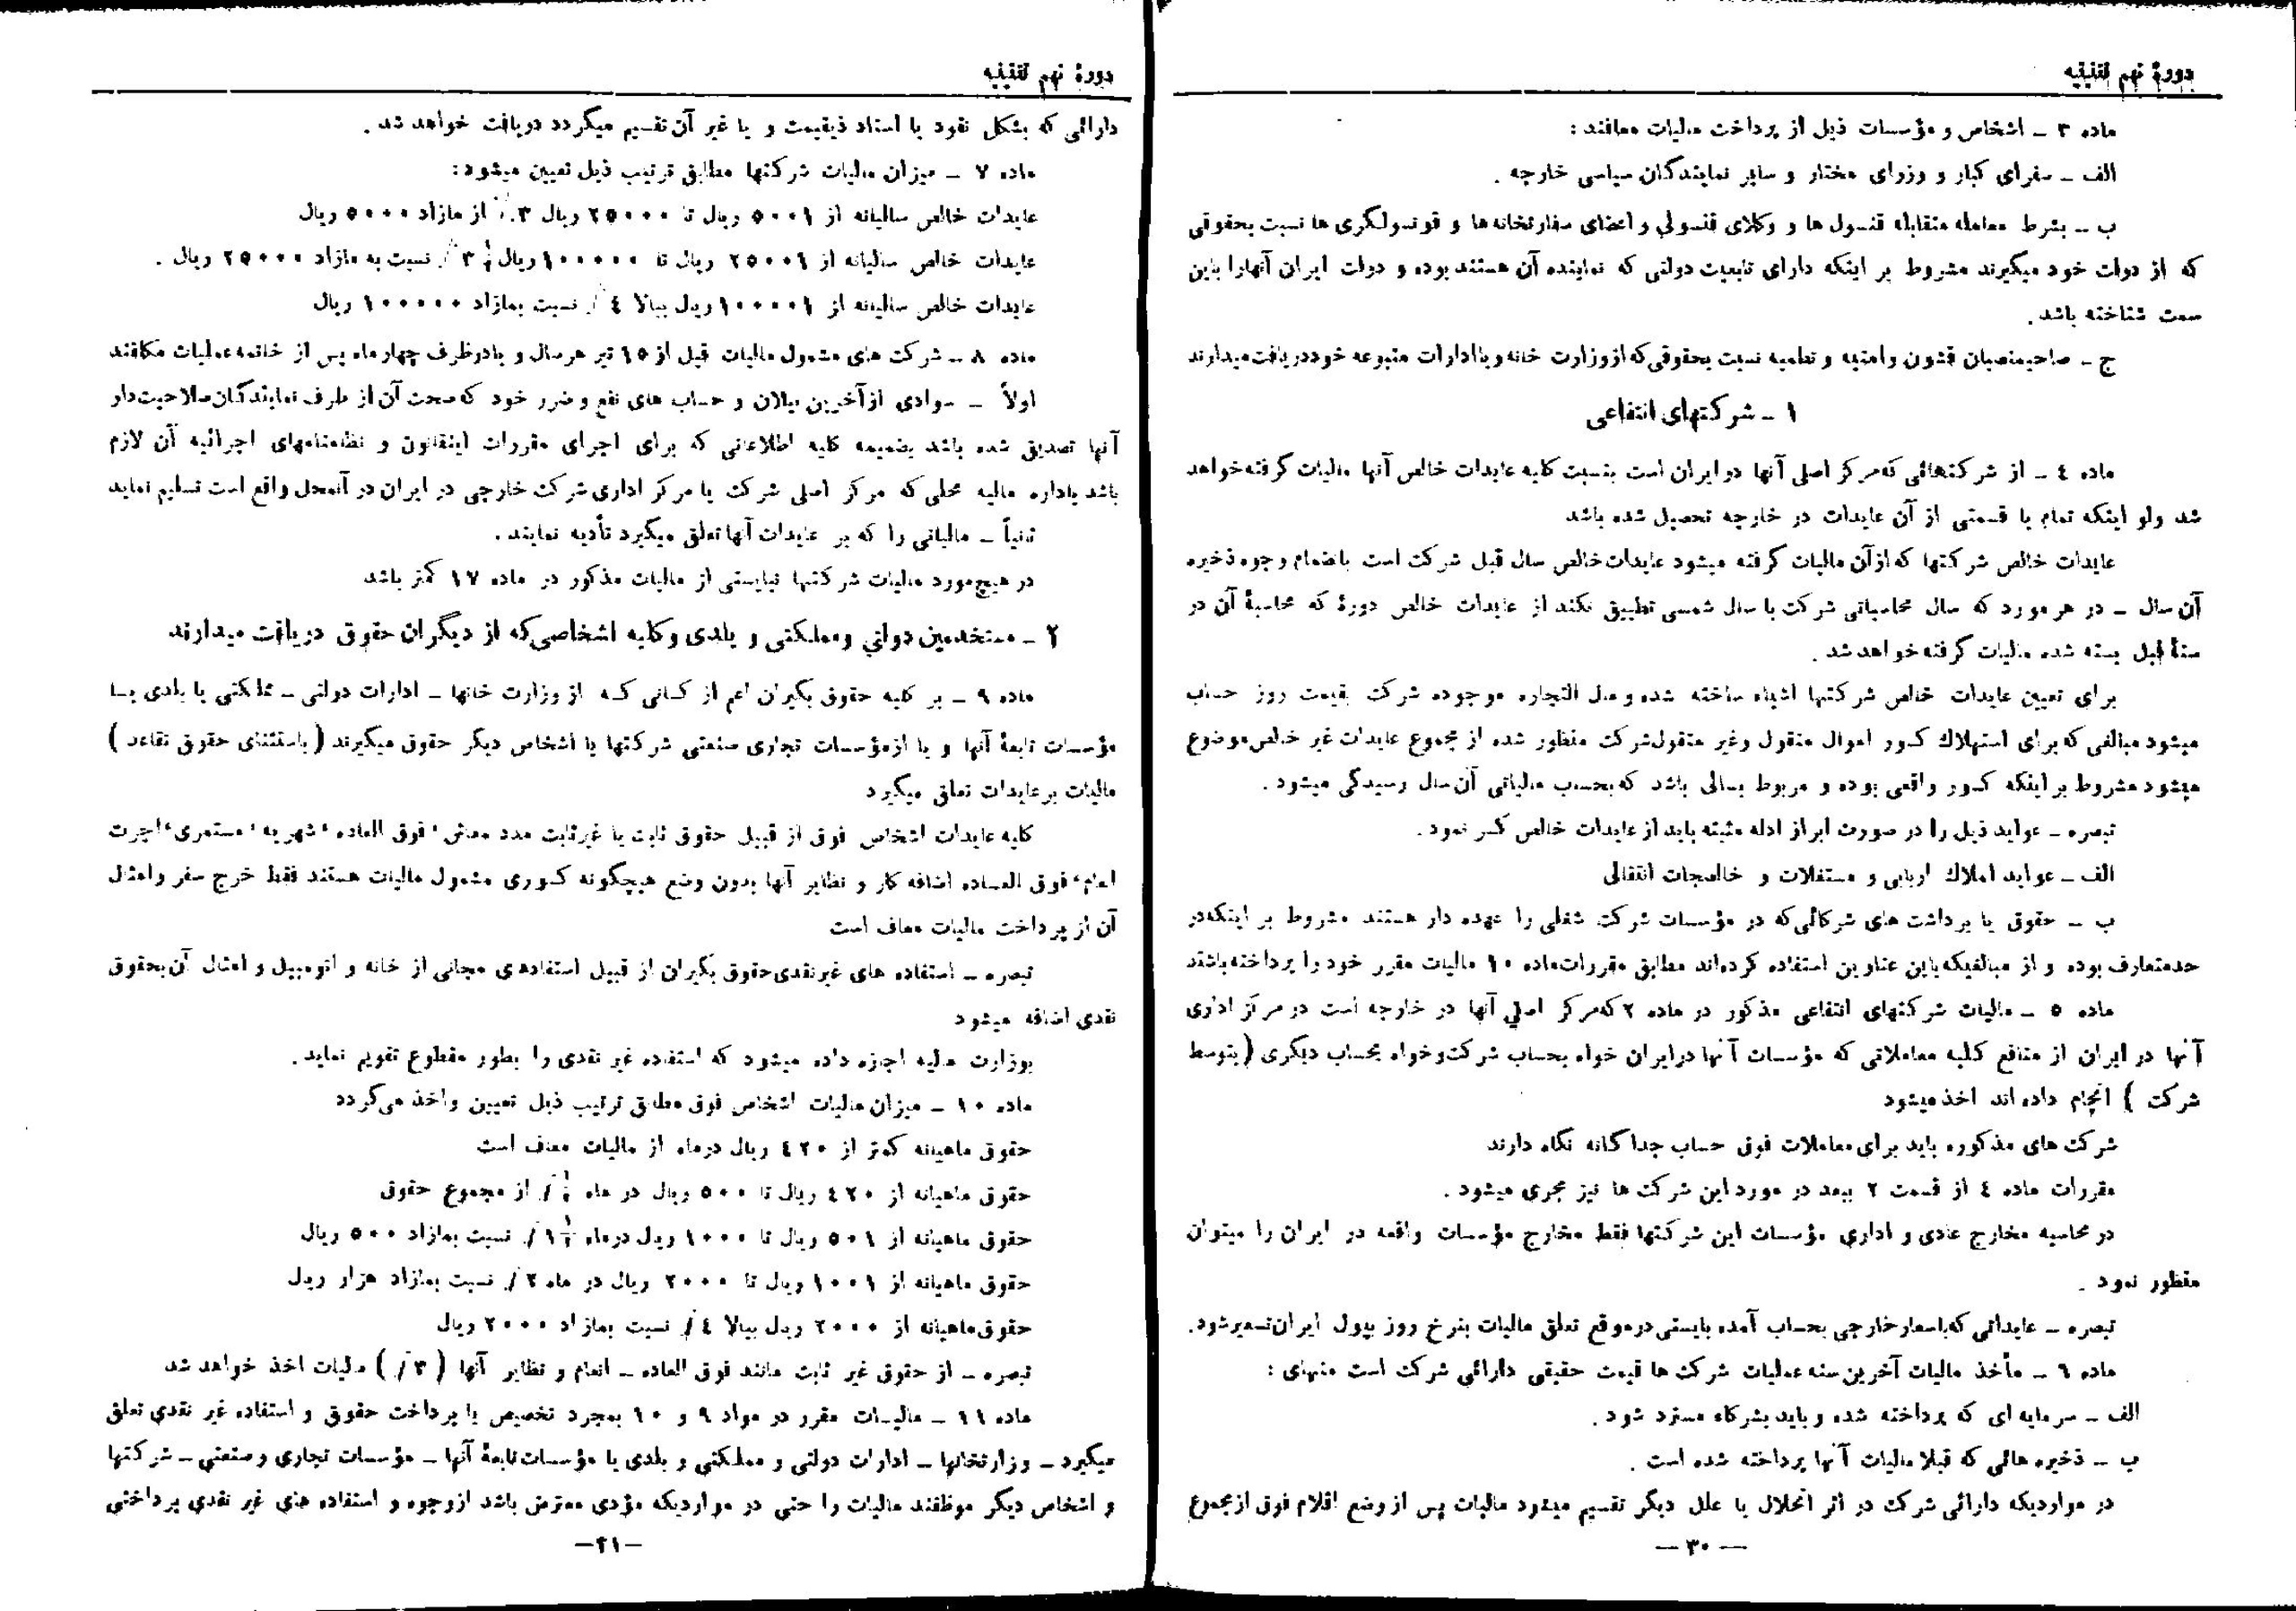 دورهٔ نهم تقنینیه
ماده ۳ ـ اشخاص و مؤسسات ذیل از پرداخت مالیات معافند :
الف ـ سفرای کبار و وزرای مختار و سایر نمایندگان سیاسی خارجه .
ب ـ بشرط معامله متقابله قنسول ها و وکلای قنسولی و اعضای سفارتخانه‌ها و قونسولگری ها نسبت بحقوقی
که از دولت خود میگیرند مشروط بر اینکه دارای تابعیت دولتی که نماینده آن هستند بوده و دولت ایران آنهارا باین
سمت شناخته باشد .
ج ـ صاحبمنصبان قشون و امنیه و نظمیه نسبت بحقوقی که از وزارت خانه و یا ادارات متبوعه خود دریافت میدارند
۱ ـ شرکتهای انتفاعی
ماده ٤ ـ از شرکتهائی که مرکز اصلی آنها در ایران است بنسبت کلیه عایدات خالص آنها مالیات گرفته خواهد
شد ولو اینکه تمام یا قسمتی از آن عایدات در خارجه تحصیل شده باشد
عایدات خالص شرکتها که از آن مالیات گرفته میشود عایدات خالص سال قبل شرکت است باضمام وجوه ذخیره
آن سال ـ در هر مورد که سال محاسباتی شرکت با سال شمسی تطبیق نکند از عایدات خالص دورهٔ که محاسبهٔ آن در
سنهٔ قبل بسته شده مالیات گرفته خواهد شد .
برای تعیین عایدات خالص شرکتها اشیاء ساخته شده و مال التجاره موجوده شرکت بقیمت روز حساب
میشود مبالغی که برای استهلاك کسور اموال منقول وغیر منقول شرکت منظور شده از مجموع عایدات غیر خالص موضوع
میشود مشروط بر اینکه کسور واقعی بوده و مربوط بسالی باشد که بحساب مالیاتی آن سال رسیدگی میشود .
تبصره ـ عواید ذیل را در صورت ابراز ادله مثبته باید از عایدات خالص کسر نمود .
الف ـ عواید املاك اربابی و مستغلات و خالصجات انتقالی
ب ـ حقوق یا برداشت های شرکائی که در مؤسسات شرکت شغلی را عهده دار هستند مشروط بر اینکه در
حد متعارف بوده و از مبالغیکه باین عناوین استفاده کرده‌اند مطابق مقررات ماده ۱۰ مالیات مقرر خود را پرداخته باشند
ماده ٥ ـ مالیات شرکتهای انتفاعی مذکور در ماده ۲ که مرکز اصلي آنها در خارجه است در مرکز اداری
آنها در ایران از منافع کلیه معاملاتی که مؤسسات آنها در ایران خواه بحساب شرکت و خواه بحساب دیگری ( بتوسط
شرکت ) انجام داده اند اخذ میشود
شرکت های مذکوره باید برای معاملات فوق حساب جداگانه نگاه دارند
مقررات ماده ٤ از قسمت ۲ ببعد در مورد این شرکت ها نیز مجری میشود .
در محاسبه مخارج عادی و اداری مؤسسات این شرکتها فقط مخارج مؤسسات واقعه در ایران را میتوان
منظور نمود .
تبصره ـ عایداتی که باسعار خارجی بحساب آمده بایستی در موقع تعلق مالیات بنرخ روز بپول ایران تسعیر شود .
ماده ٦ ـ مأخذ مالیات آخرین سنه عملیات شرکت ها قیمت حقیقی دارائی شرکت است منهای :
الف ـ سرمایه ای که پرداخته شده و باید بشرکاء مسترد شود .
ب ـ ذخیره هائی که قبلا مالیات آنها پرداخته شده است .
در مواردیکه دارائی شرکت در اثر انحلال یا علل دیگر تقسیم میشود مالیات پس از وضع اقلام فوق از مجموع
ـ ۳۰ ـ
دورهٔ نهم تقنینیه
دارائی که بشکل نقود یا اسناد ذیقیمت و یا غیر آن تقسیم میگردد دریافت خواهد شد .
ماده ۷ ـ میزان مالیات شرکتها مطابق ترتیب ذیل تعیین میشود :
عایدات خالص سالیانه از ٥۰۰۱ ریال تا ۲٥۰۰۰ ریال ۳٪ از مازاد ٥۰۰۰ ریال
عایدات خالص سالیانه از ۲٥۰۰۱ ریال تا ۱۰۰۰۰۰ ریال ۳½٪ نسبت به مازاد ۲٥۰۰۰ ریال .
عایدات خالص سالیانه از ۱۰۰۰۰۱ ریال ببالا ٤٪ نسبت بمازاد ۱۰۰۰۰۰ ریال
ماده ۸ ـ شرکت های مشمول مالیات قبل از ۱٥ تیر هر سال و یا در ظرف چهار ماه پس از خاتمه عملیات مکلفند
اولاً ـ سوادی از آخرین بیلان و حساب های نفع و ضرر خود که صحت آن از طرف نمایندگان صلاحیت دار
آنها تصدیق شده باشد بضمیمه کلیه اطلاعاتی که برای اجرای مقررات اینقانون و نظامنامهای اجرائیه آن لازم
باشد باداره مالیه محلی که مرکز اصلی شرکت یا مرکز اداری شرکت خارجی در ایران در آنمحل واقع است تسلیم نماید
ثانیاً ـ مالیاتی را که بر عایدات آنها تعلق میگیرد تأدیه نمایند .
در هیچ مورد مالیات شرکتها نبایستی از مالیات مذکور در ماده ۱۷ کمتر باشد
۲ ـ مستخدمین دولتي ومملکتی و بلدی وکلیه اشخاصی که از دیگران حقوق دریافت میدارند
ماده ۹ ـ بر کلیه حقوق بگیران اعم از کسانی که از وزارت خانها ـ ادارات دولتی ـ مملکتی یا بلدی یا
مؤسسات تابعهٔ آنها و یا از مؤسسات تجاری صنعتی شرکتها یا اشخاص دیگر حقوق میگیرند ( باستثنای حقوق تقاعد )
مالیات بر عایدات تعلق میگیرد
کلیه عایدات اشخاص فوق از قبیل حقوق ثابت یا غیر ثابت مدد معاش ، فوق العاده ، شهریه ، مستمری ، اجرت
انعام ، فوق العاده اضافه کار و نظایر آنها بدون وضع هیچگونه کسوری مشمول مالیات هستند فقط خرج سفر وامثال
آن از پرداخت مالیات معاف است
تبصره ـ استفاده های غیر نقدی حقوق بگیران از قبیل استفادهای مجانی از خانه و اتومبیل و امثال آن بحقوق
نقدی اضافه میشود
بوزارت مالیه اجازه داده میشود که استفاده غیر نقدی را بطور مقطوع تقویم نماید .
ماده ۱۰ ـ میزان مالیات اشخاص فوق مطابق ترتیب ذیل تعیین و اخذ می‌گردد
حقوق ماهیانه کمتر از ٤۲۰ ریال در ماه از مالیات معاف است
حقوق ماهیانه از ٤۲۰ ریال تا ٥۰۰ ریال در ماه ٪ از مجموع حقوق
حقوق ماهیانه از ٥۰۱ ریال تا ۱۰۰۰ ریال در ماه ۱½٪ نسبت بمازاد ٥۰۰ ریال
حقوق ماهیانه از ۱۰۰۱ ریال تا ۲۰۰۰ ریال در ماه ۲٪ نسبت بمازاد هزار ریال
حقوق ماهیانه از ۲۰۰۰ ریال ببالا ٤٪ نسبت بمازاد ۲۰۰۰ ریال
تبصره ـ از حقوق غیر ثابت مانند فوق العاده ـ انعام و نظایر آنها ( ۳٪ ) مالیات اخذ خواهد شد
ماده ۱۱ ـ مالیات مقرر در مواد ۹ و ۱۰ بمجرد تخصیص یا پرداخت حقوق و استفاده غیر نقدی تعلق
میگیرد ـ وزارتخانها ـ ادارات دولتی و مملکتی و بلدی یا مؤسسات تابعهٔ آنها ـ مؤسسات تجاری وصنعتی ـ شرکتها
و اشخاص دیگر موظفند مالیات را حتی در مواردیکه مؤدی معترض باشد از وجوه و استفاده های غیر نقدی پرداختی
ـ۳۱ـ